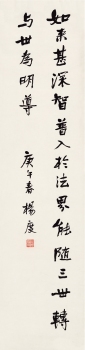 如來甚深智普入於法界能隨三世轉
与世為明導
庚午春楊度